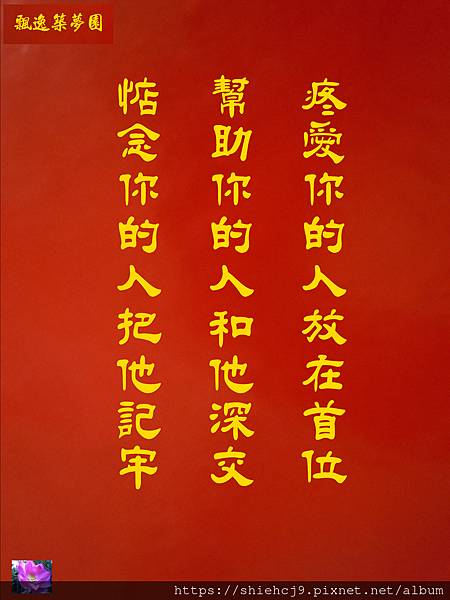 飄逸築夢園
疼愛你的人放在首位
幫助你的人和他深交
惦念你的人把他記牢
https://shiehcj9.pixnet.net/album